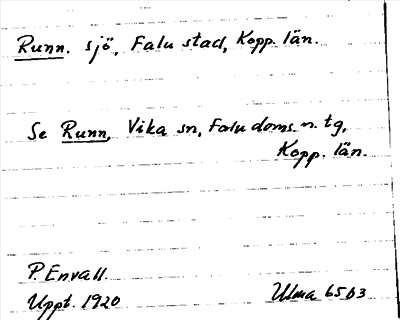 Runn. sjö, Falu stad, Kopp. län.
Se Runn, Vika sn, Falu doms. n. tg,
Kopp. län.
P. Envall.
Uppt. 1920
Ulma 6503